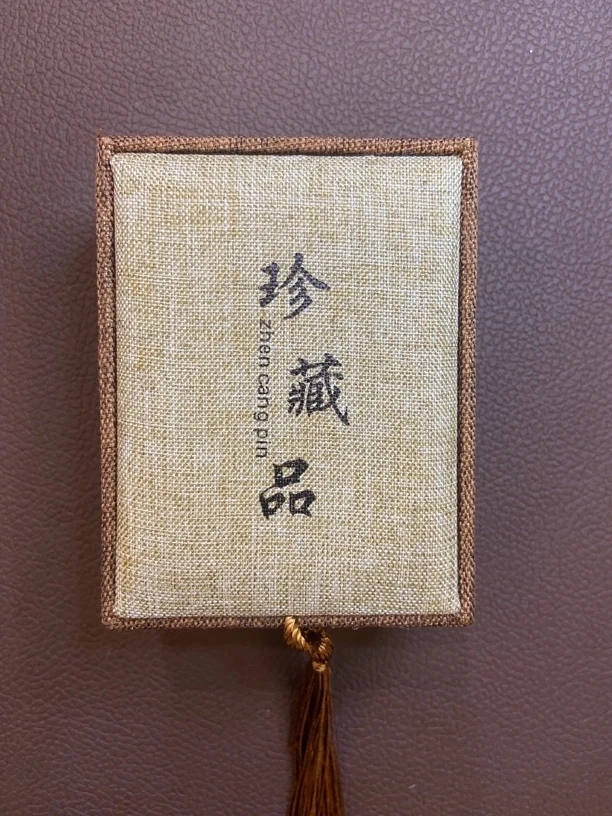 珍藏品
zhen cang pin